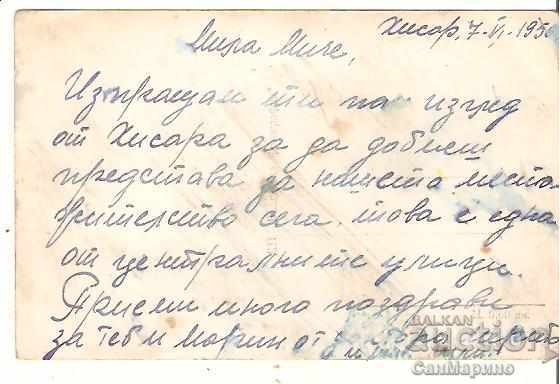 Хисар, 7-VI-195
Мила Миче,
Изпращам ти изглед
от Хисара за да добиеш
представа за нашето место
жителство сега. това е една
от централните улици.
Приеми много поздрави
за теб и Марин от
BALKAN
auction
СанМарино